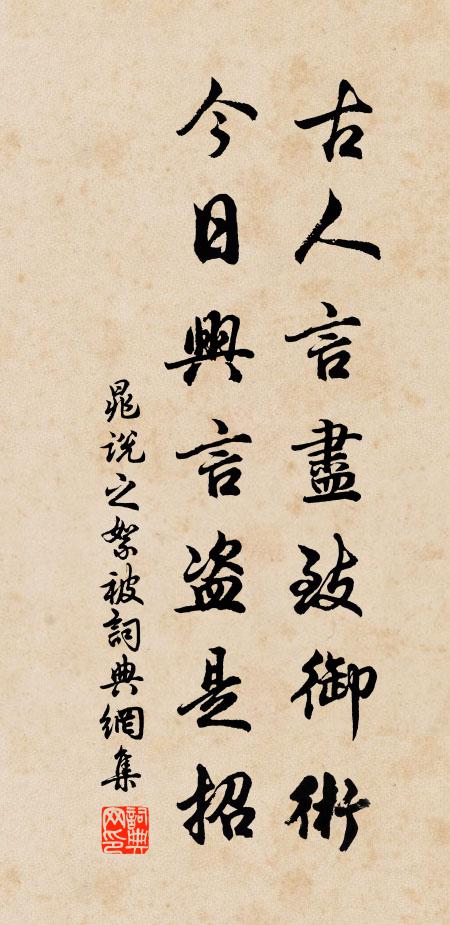 古人言盡致御術
今日興言盗是招
晁説之絮被詞典網集
詞典網印